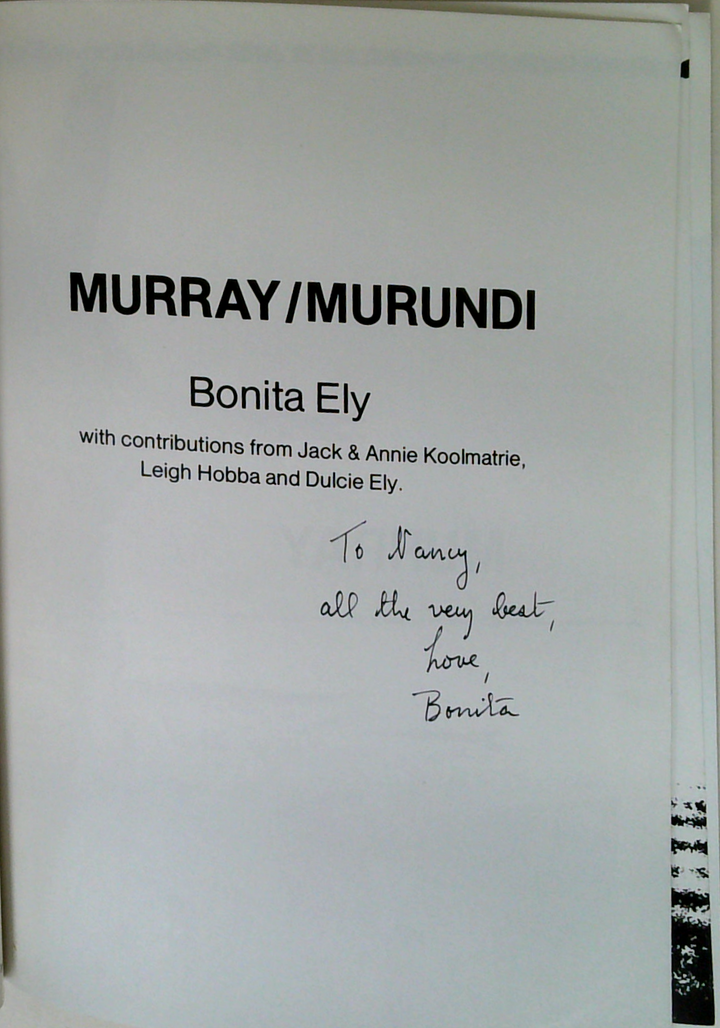 MURRAY/MURUNDI
Bonita Ely
with contributions from Jack & Annie Koolmatrie,
Leigh Hobba and Dulcie Ely.
To Nancy,
all the very best,
Love,
Bonita